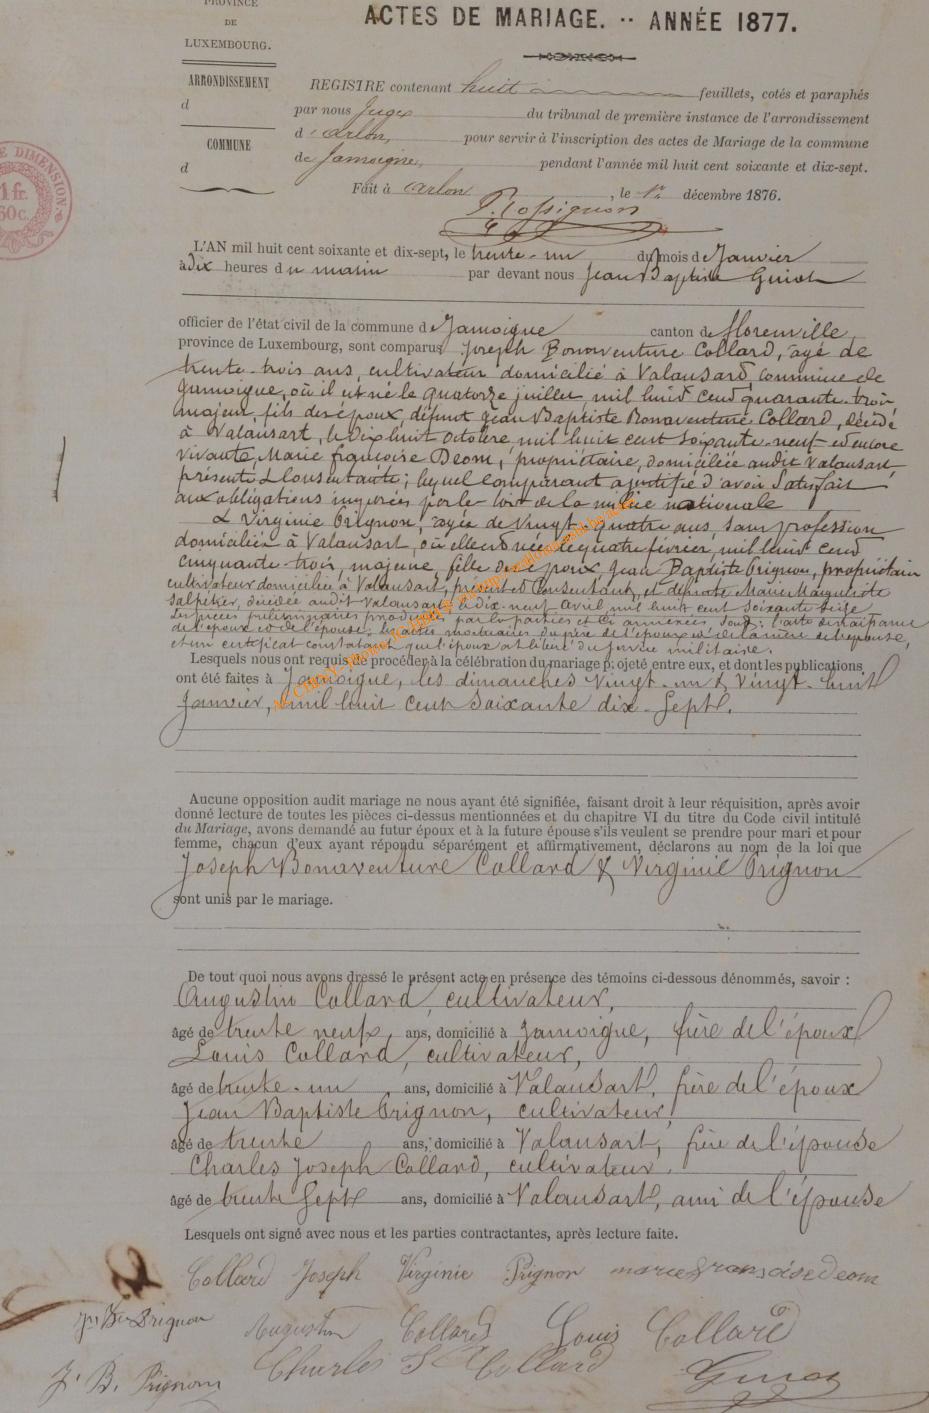 PROVINCE
DE
LUXEMBOURG.
ARRONDISSEMENT
d
COMMUNE
d
E DIMENSION.
1 fr.
60c.
ACTES DE MARIAGE. -- ANNÉE 1877.
REGISTRE contenant huit feuillets, cotés et paraphés
par nous Juge du tribunal de première instance de l'arrondissement
d'arlon, pour servir à l'inscription des actes de Mariage de la commune
de Jamoigne, pendant l'année mil huit cent soixante et dix-sept.
Fait à arlon, le 1r décembre 1876.
Rossignon
L'AN mil huit cent soixante et dix-sept, le trente-un du mois de Janvier
à dix heures du matin par devant nous Jean Baptiste Guiot
officier de l'état civil de la commune de Jamoigne canton de florenville,
province de Luxembourg, sont comparus Joseph Bonaventure Collard, âgé de
trente-trois ans, cultivateur domicilié à Valansard, commune de
Jamoigne, où il est né le quatorze juillet mil huit cent quarante-trois
majeur, fils des époux, défunt Jean Baptiste Bonaventure Collard, décédé
à Valansart, le dix huit octobre mil huit cent soixante-neuf et encore
vivante, Marie françoise Deom, propriétaire, domiciliée audit Valansart
présente & consentante; lequel comparant a justifié d'avoir satisfait
aux obligations imposées par les lois de la milice nationale
& Virginie Prignon, âgée de vingt-quatre ans, sans profession
domiciliée à Valansart, où elle est née le quatre février, mil huit cent
cinquante-trois, majeure, fille des époux Jean Baptiste Prignon, propriétaire
cultivateur domicilié à Valansart, présent et consentant, et défunte Marie Marguerite
décédée audit Valansart, le dix-neuf avril mil huit cent soixante seize
Les pièces préliminaires produites par les parties et ci annexées sont: l'acte de naissance
de l'époux et de l'épouse; les actes mortuaires du père de l'époux et de la mère de l'épouse,
et un certificat constatant que l'époux a libéré du service militaire.
Lesquels nous ont requis de procéder à la célébration du mariage projeté entre eux, et dont les publications
ont été faites à Jamoigne, les dimanches vingt-un & vingt-huit
Janvier, mil huit cent soixante dix-sept.
Aucune opposition audit mariage ne nous ayant été signifiée, faisant droit à leur réquisition, après avoir
donné lecture de toutes les pièces ci-dessus mentionnées et du chapitre VI du titre du Code civil intitulé
du Mariage, avons demandé au futur époux et à la future épouse s'ils veulent se prendre pour mari et pour
femme, chacun d'eux ayant répondu séparément et affirmativement, déclarons au nom de la loi que
Joseph Bonaventure Collard & Virginie Prignon
sont unis par le mariage.
De tout quoi nous avons dressé le présent acte en présence des témoins ci-dessous dénommés, savoir :
Augustin Collard, cultivateur,
âgé de trente neuf, ans, domicilié à Jamoigne, frère de l'époux
Louis Collard, cultivateur,
âgé de trente-un ans, domicilié à Valansart, frère de l'époux
Jean Baptiste Prignon, cultivateur,
âgé de trente ans, domicilié à Valansart, frère de l'épouse
Charles Joseph Collard, cultivateur,
âgé de trente sept ans, domicilié à Valansart, ami de l'épouse
Lesquels ont signé avec nous et les parties contractantes, après lecture faite.
Collard Joseph Virginie Prignon marie françoise deom
Prignon Augustin Collard Louis Collard
J. B. Prignon Charles Collard Guiot